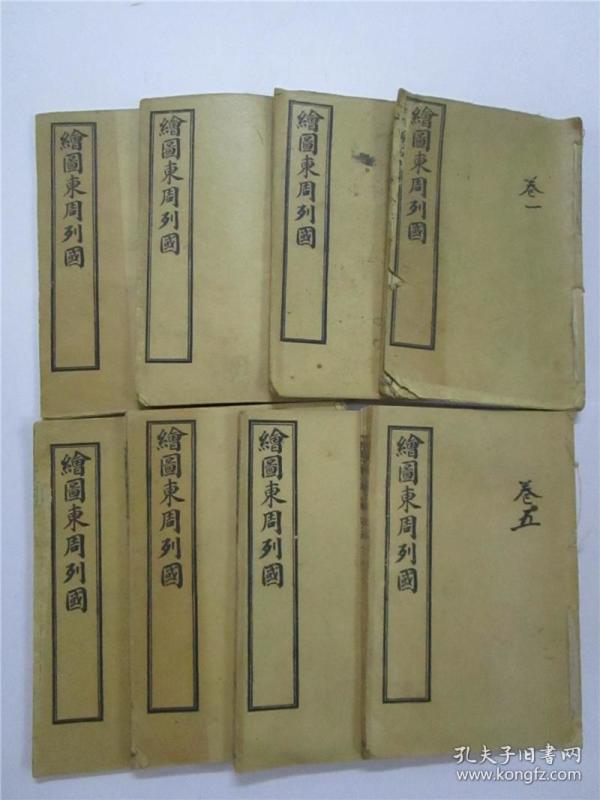 繪圖東周列國
繪圖東周列國
繪圖東周列國
繪圖東周列國
卷一
繪圖東周列國
繪圖東周列國
繪圖東周列國
繪圖東周列國
卷五
孔夫子旧书网
www.kongfz.com